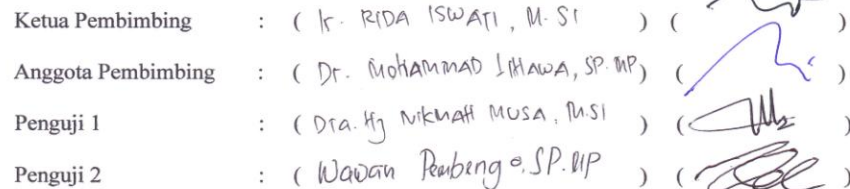 Ketua Pembimbing : ( Ir. RIDA ISWATI, M.SI ) ( )
Anggota Pembimbing : ( Dr. MOHAMMAD LIHAWA, SP.MP) ( )
Penguji 1 : ( Dra. Hj NIKMAH MUSA, M.SI ) ( )
Penguji 2 : ( Wawan Pembengo, SP.MP ) ( )